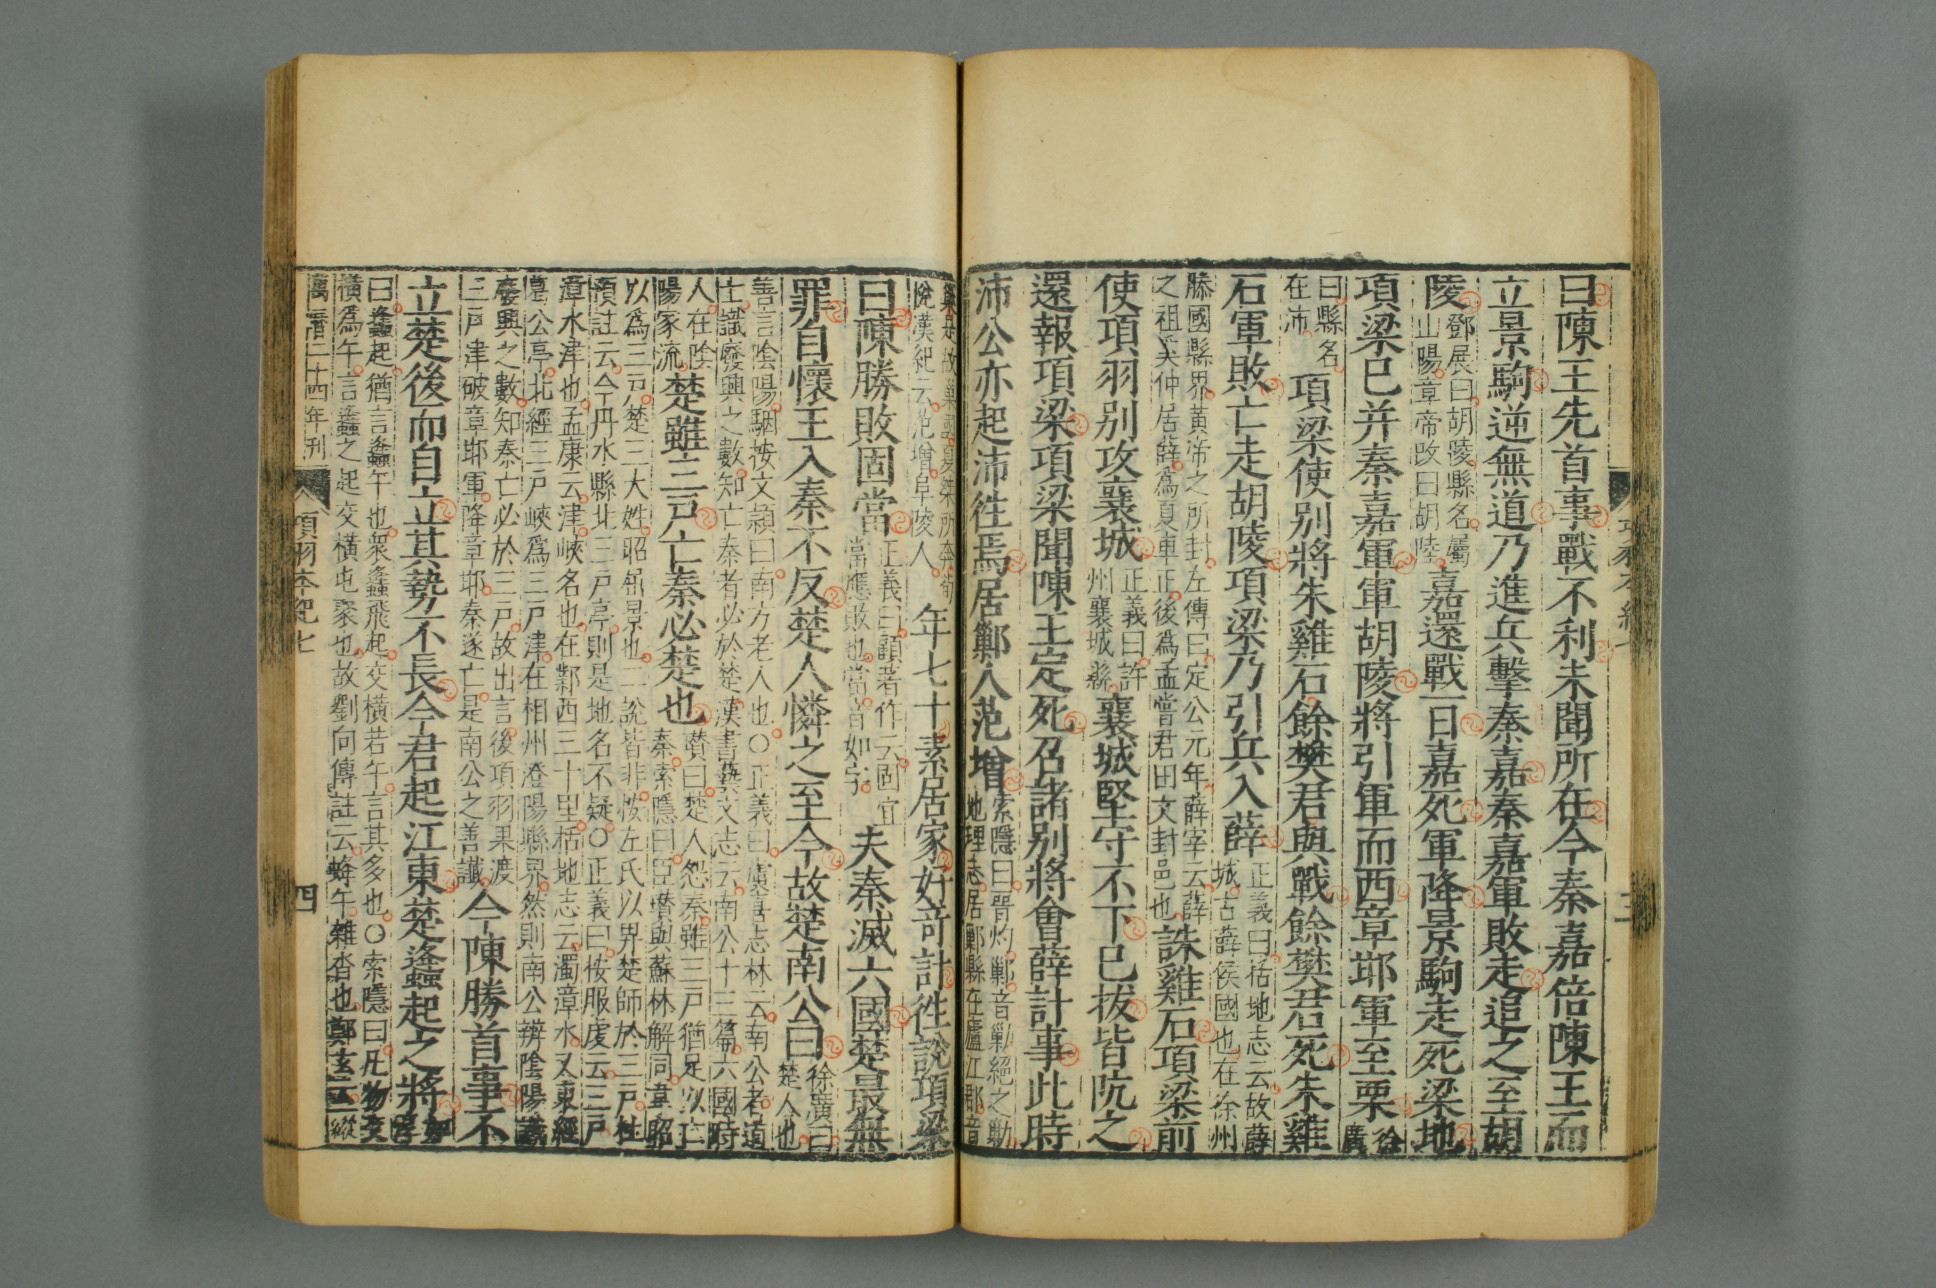 曰陳王先首事戰不利未聞所在今秦嘉倍陳王而
立景駒逆無道乃進兵擊秦嘉秦嘉軍敗走追之至胡
陵鄧展曰胡陵縣名屬山陽章帝改曰胡陸嘉還戰一日嘉死軍降景駒走死梁地
項梁已并秦嘉軍軍胡陵將引軍而西章邯軍至栗徐廣
曰縣名在沛項梁使別將朱雞石餘樊君與戰餘樊君死朱雞
石軍敗亡走胡陵項梁乃引兵入薛正義曰括地志云故薛城古薛侯國也在徐州
滕國縣界黃帝之所封左傳曰定公元年薛宰云薛之祖奚仲居薛爲夏車正後爲孟嘗君田文封邑也誅雞石項梁前
使項羽別攻襄城正義曰許州襄城縣襄城堅守不下已拔皆阬之
還報項梁項梁聞陳王定死召諸別將會薛計事此時
沛公亦起沛往焉居鄛人范增索隱曰晉灼鄛音勦絕之勦地理志居鄛縣在廬江郡音
巢是故巢國夏桀所奔荀悅漢紀云范增阜陵人年七十素居家好奇計往說項梁
曰陳勝敗固當正義曰顧著作云固宜當應敗也當音如字夫秦滅六國楚最無
罪自懷王入秦不反楚人憐之至今故楚南公曰徐廣曰楚人也
善言陰陽駰按文穎曰南方老人也〇正義曰虞喜志林云南公者道士識廢興之數知亡秦者必於楚漢書藝文志云南公十三篇六國時
人在陰陽家流楚雖三戶亡秦必楚也瓚曰楚人怨秦雖三戶猶足以亡秦索隱曰臣瓚與蘇林解同韋昭
以爲三戶楚三大姓昭屈景也二說皆非按左氏以畀楚師於三戶杜預註云今丹水縣北三戶亭則是地名不疑〇正義曰按服虔云三戶
漳水津也孟康云津峽名也在鄴西三十里括地志云濁漳水又東經葛公亭北經三戶峽爲三戶津在相州滏陽縣界然則南公辨陰陽識
廢興之數知秦亡必於三戶故出言後項羽果渡三戶津破章邯軍降章邯秦遂亡是南公之善讖今陳勝首事不
立楚後而自立其勢不長今君起江東楚蠭起之將如淳
曰蠭起猶言蠭午也衆蠭飛起交橫若午言其多也〇索隱曰凡物交橫爲午言蠭之起交橫屯聚也故劉向傳註云蜂午雜沓也鄭玄云一縱
萬曆二十四年刊
項羽本紀七
四